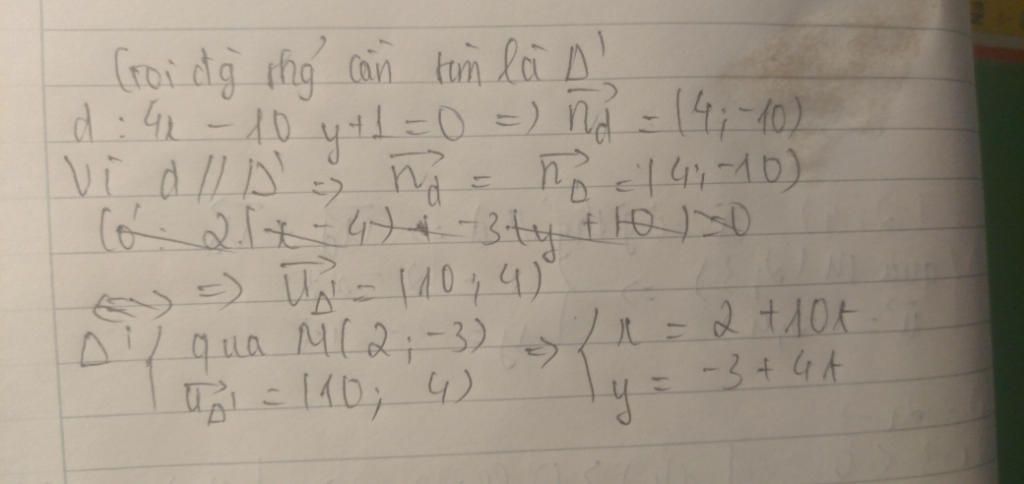 Gọi đg thg cần tìm là Δ'
d : 4x - 10 y + 1 = 0 => n⃗_d = (4; -10)
Vì d // Δ' => n⃗_d = n⃗_Δ' = (4; -10)
Có: 2.(x - 4) + -3(y + 10) = 0
<=> => u⃗_Δ' = (10; 4)
Δ' { qua M(2; -3) => { x = 2 + 10t
u⃗_Δ' = (10; 4) y = -3 + 4t